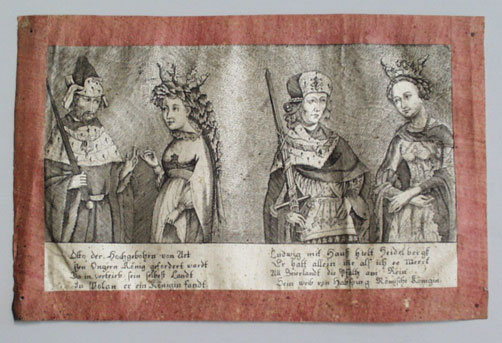 Otto der Hochgebohrn von Art
Von Ungern König gefordert wardt
Da in vertrieb sein selbst Landt
In Polon er ein Königin fandt
Ludwig mit Hauß hielt Heidelbergk
Er halt allein me als ich es
All Beierlandt die Pfaltz am Rein
Sein weib von Habspurg Römische Königin